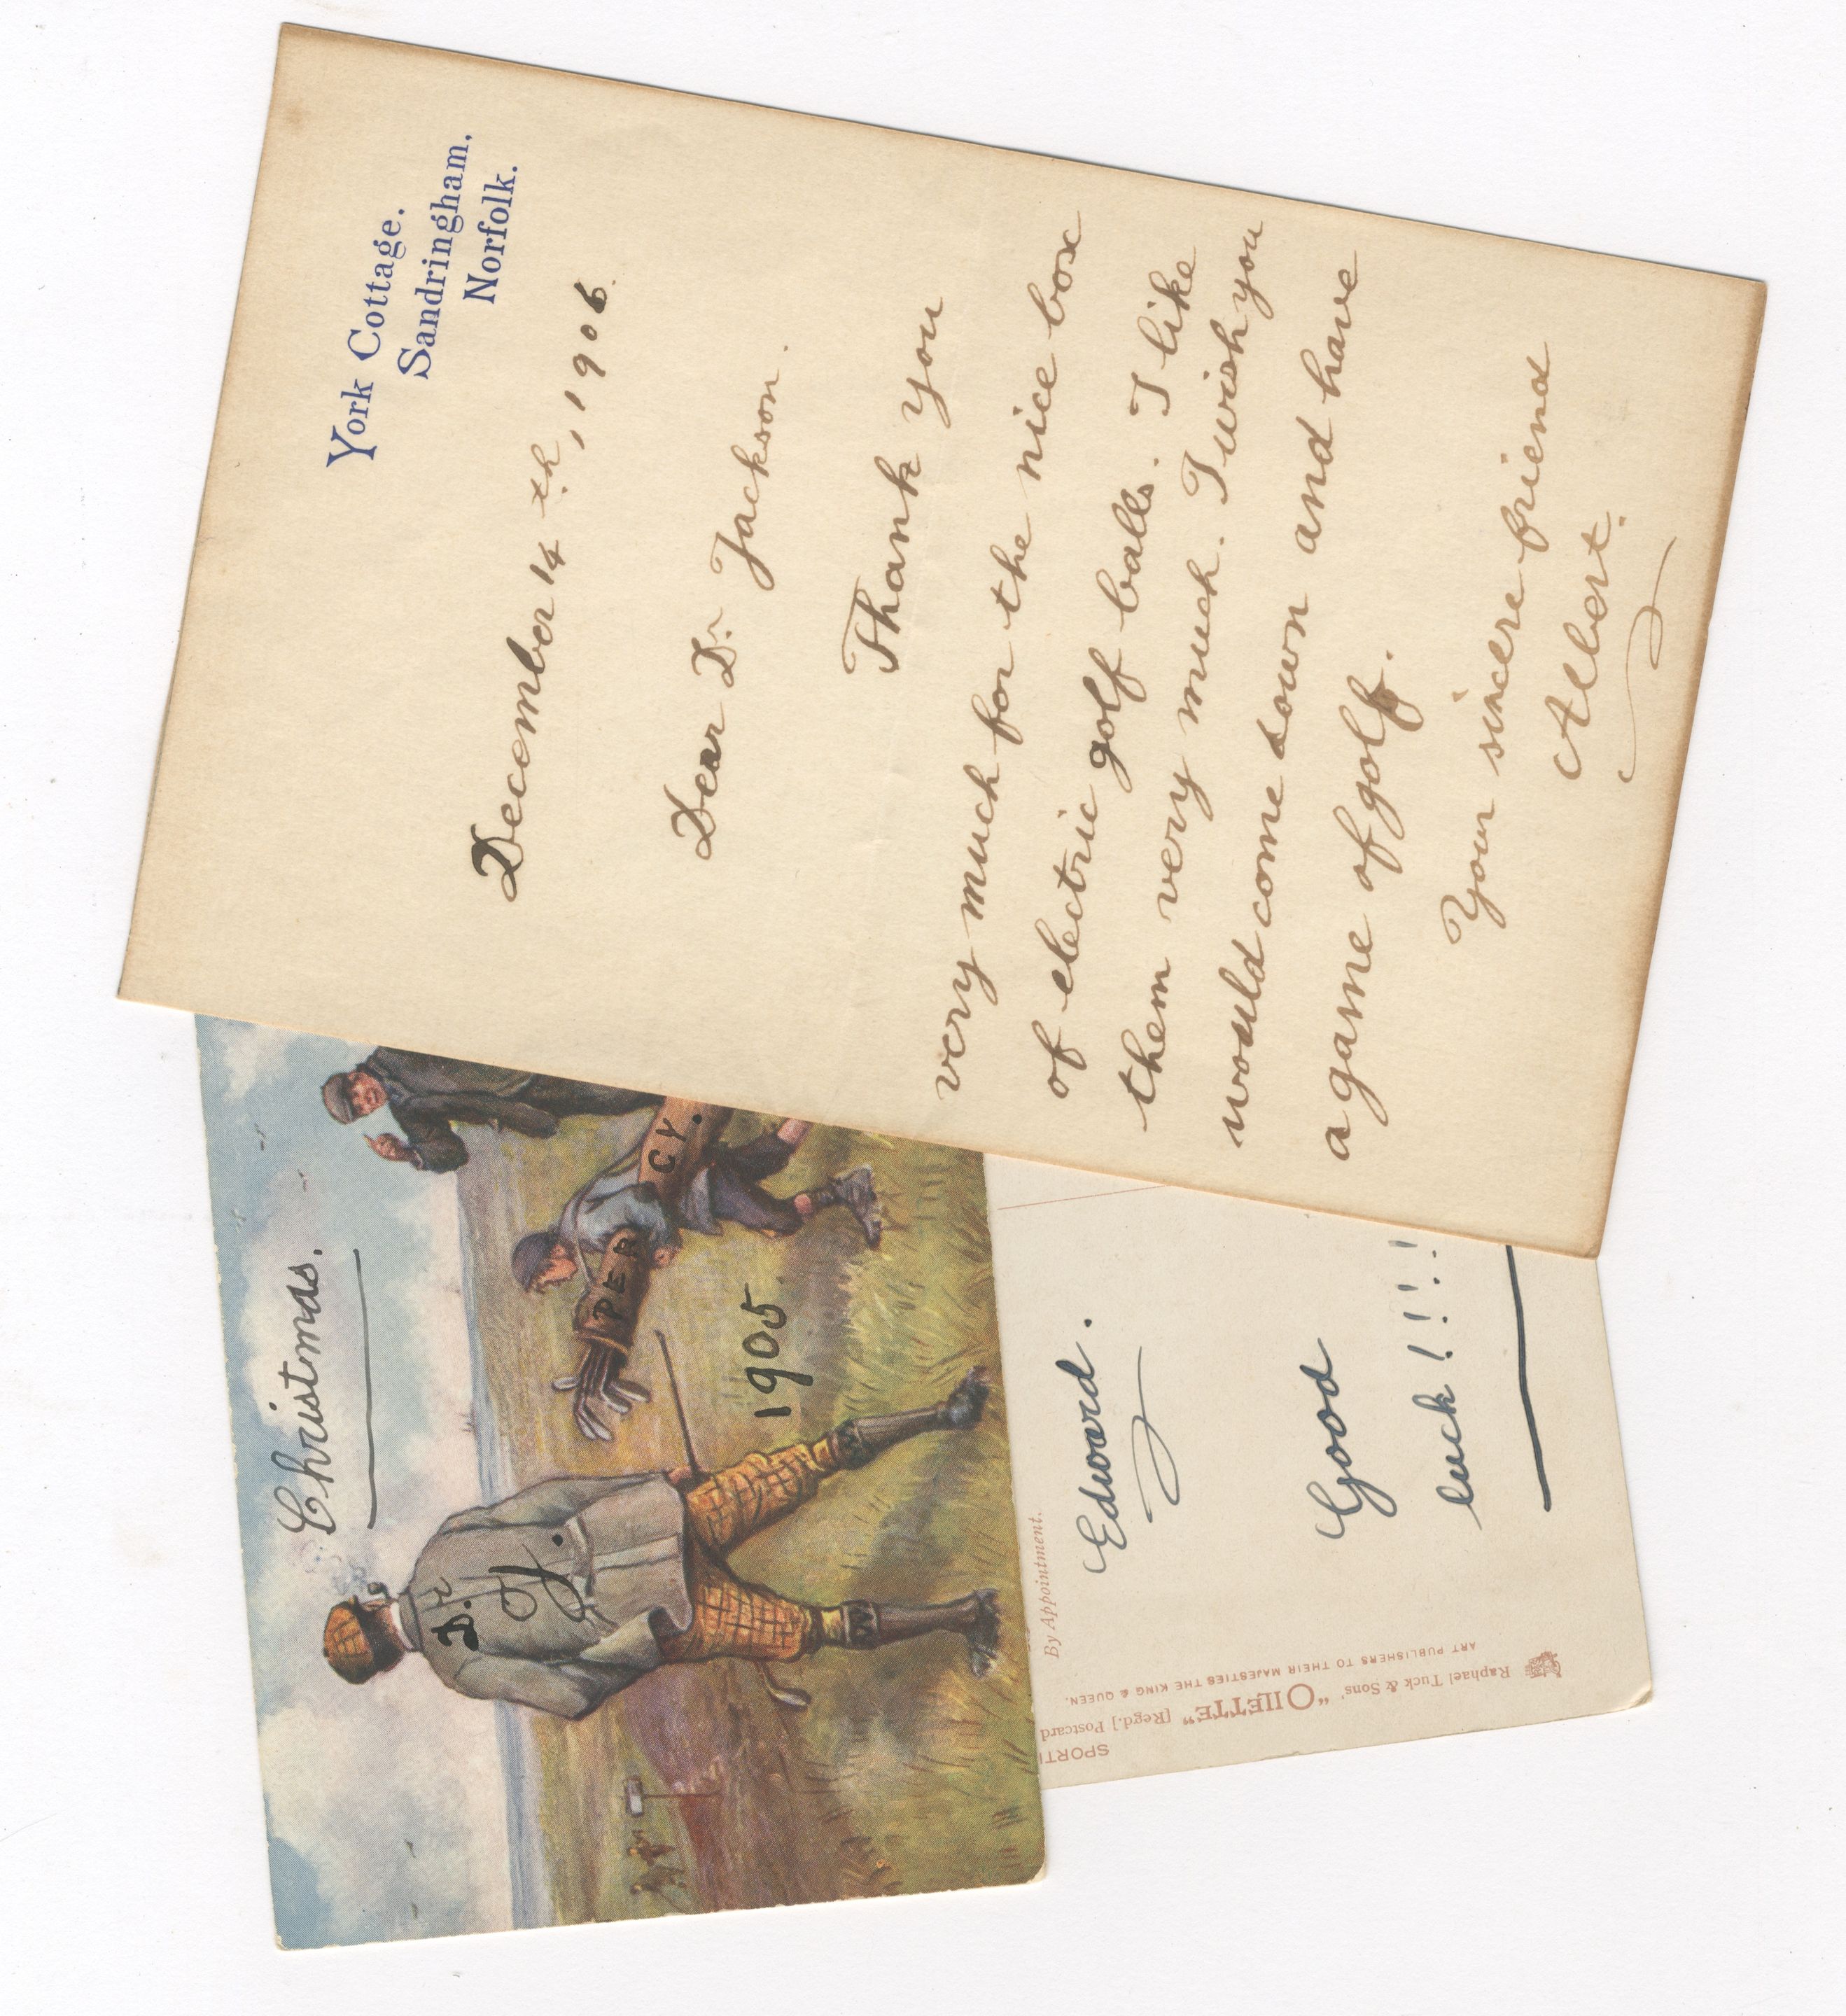 York Cottage.
Sandringham.
Norfolk.
December 14th, 1906.
Dear Dr. Jackson.
Thank you
very much for the nice box
of electric golf balls. I like
them very much. I wish you
would come down and have
a game of golf.
Your sincere friend
Albert.
Christmas.
Dr
J.
PERCY.
1905
Edward.
Good
luck!!!!
By Appointment.
SPORTI
Raphael Tuck & Sons' "OILETTE" [Regd.] Postcard
ART PUBLISHERS TO THEIR MAJESTIES THE KING & QUEEN.